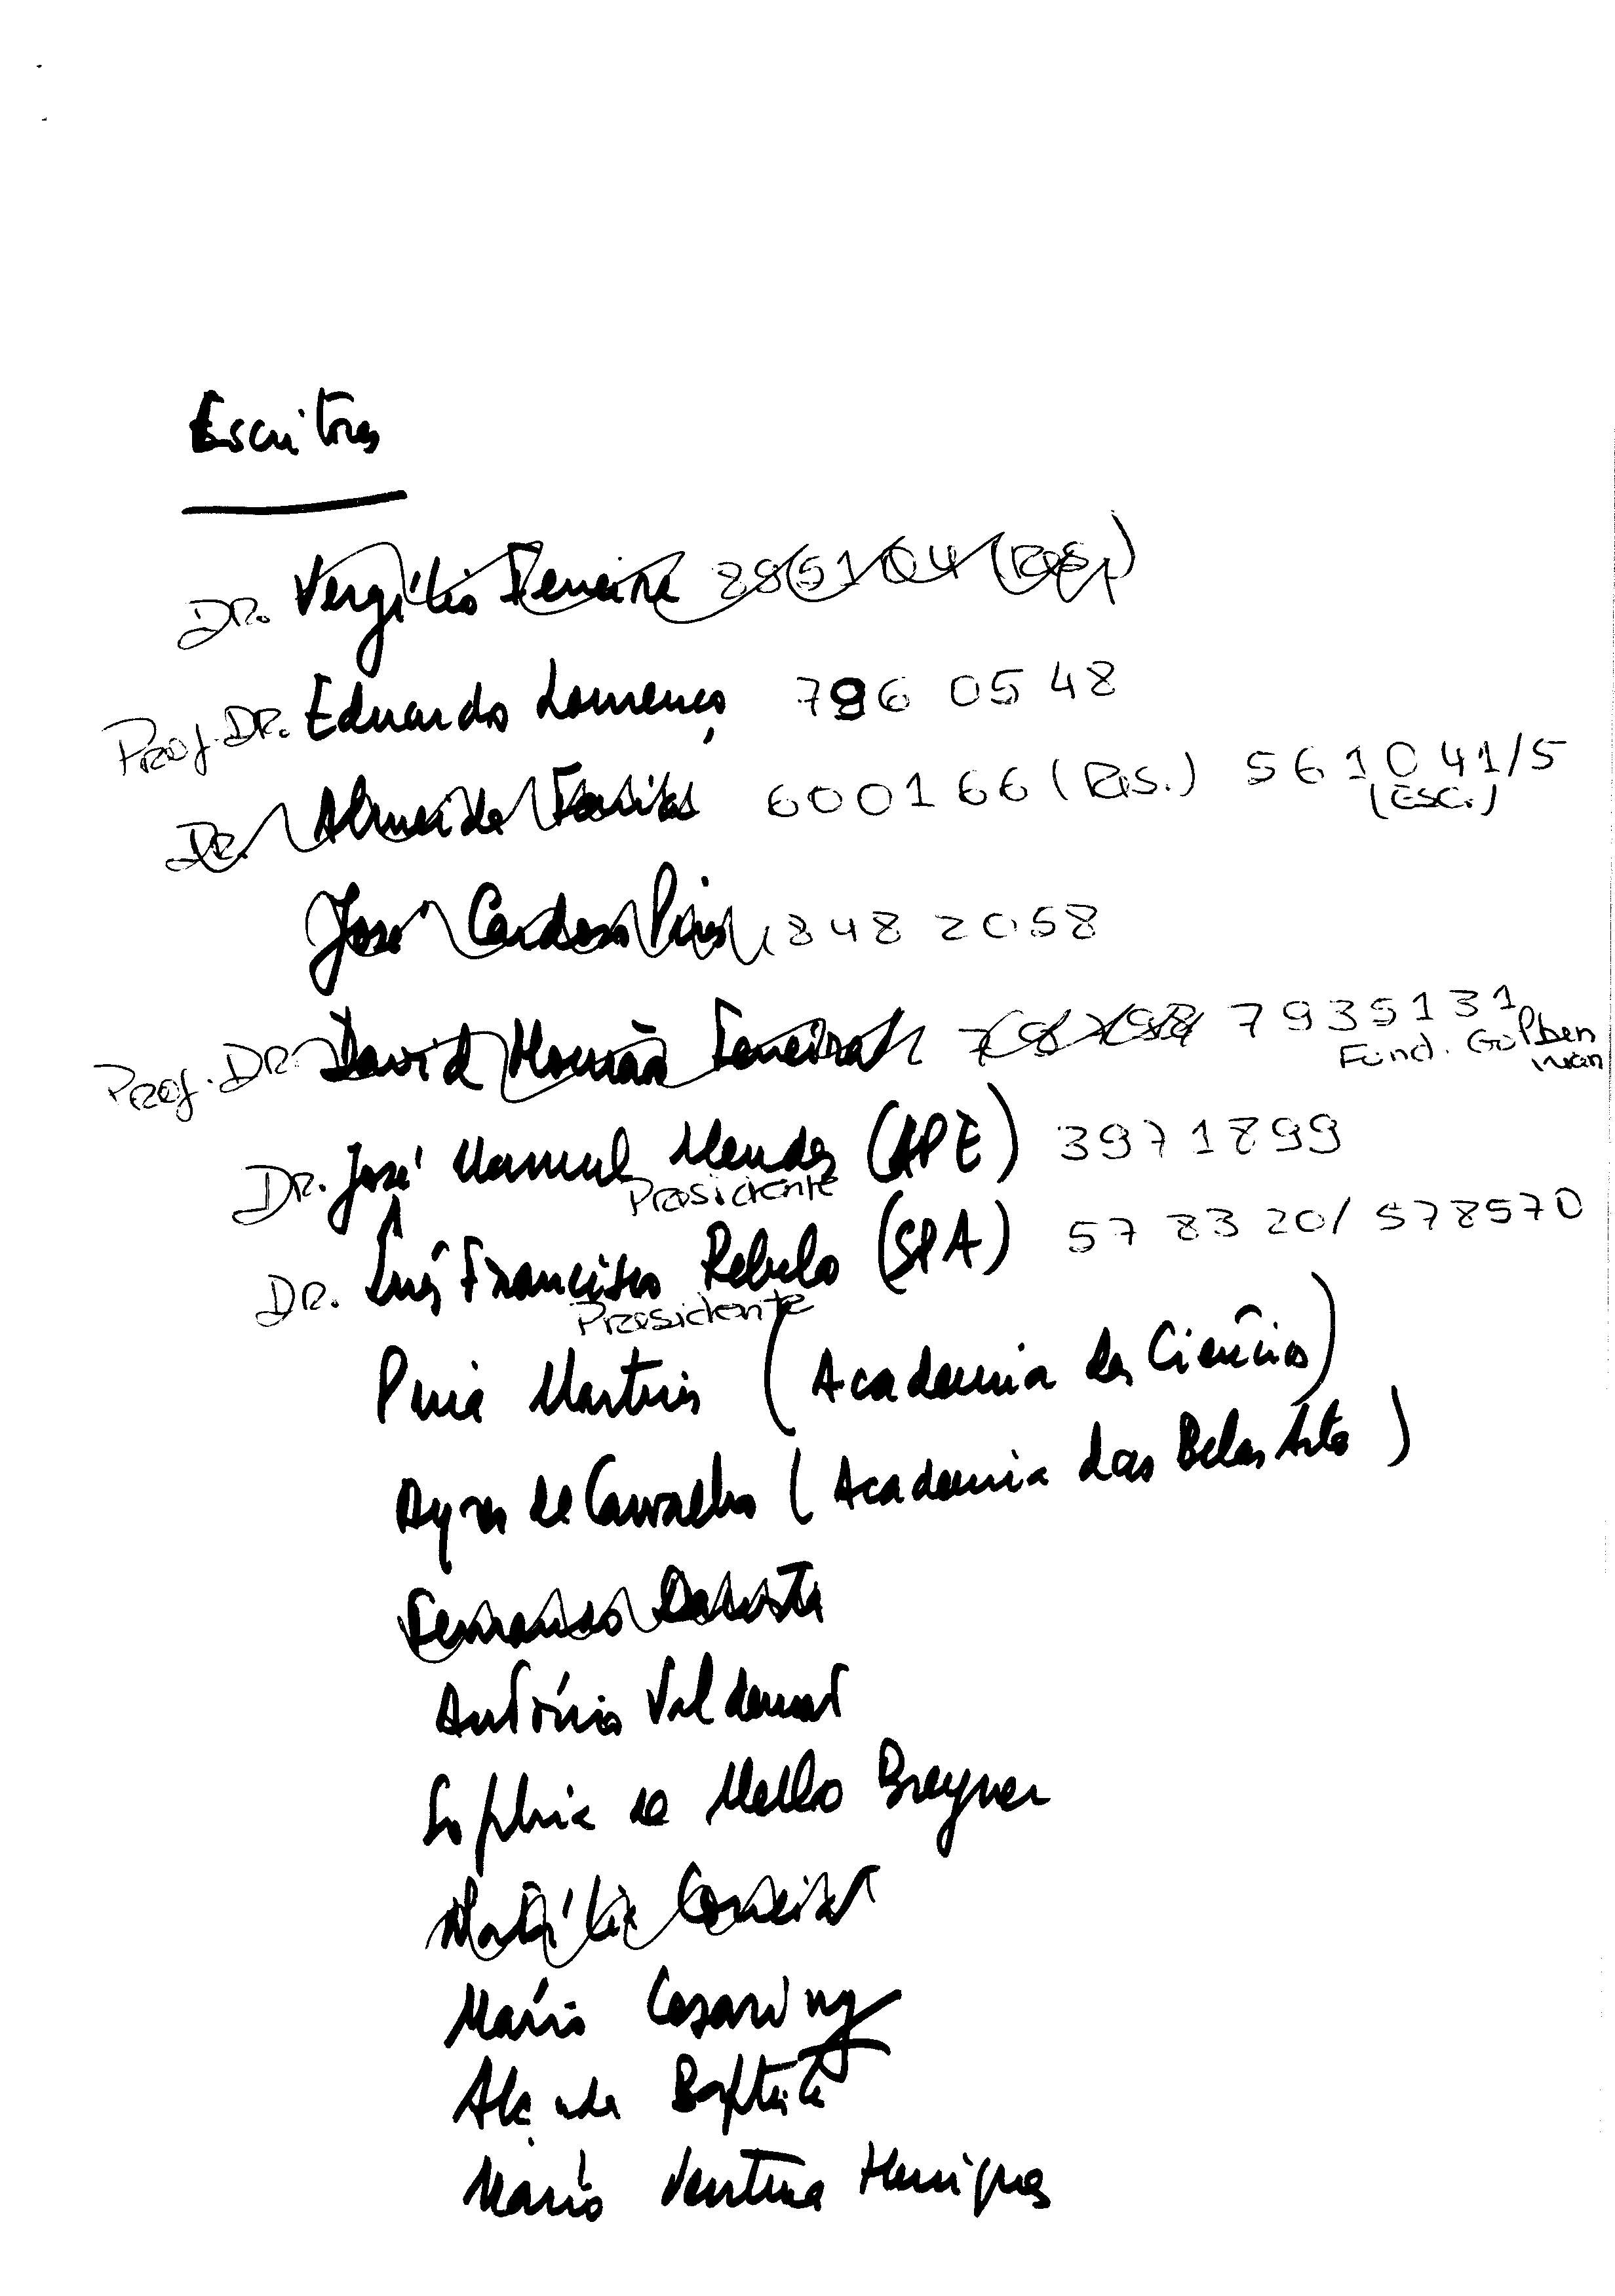 Escritores
DR. Vergílio Ferreira 2865104 (RES.)
Prof. DR. Eduardo Lourenço 796 05 48
DR. Almeida Faria 600166 (RES.) 561041/5
(ESC.)
José Cardoso Pires 848 2058
Prof. DR. David Mourão Ferreira 7935131
Fund. Gulbenkian
DR. José Manuel Mendes (APE) 3971899
Presidente
DR. Luís Francisco Rebelo (SPA) 57 83 20/ 578570
Presidente
Pina Martins (Academia das Ciências)
Ayres de Carvalho (Academia das Belas Artes)
Fernando Dacosta
António Valdemar
Sophia de Mello Breyner
Natália Correia
Mário Cesariny
Alçada Baptista
Mário Ventura Henriques